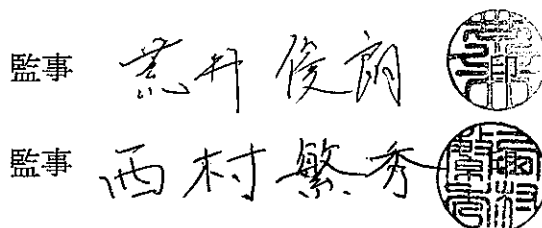 監事 荒井俊朗
監事 西村繁秀